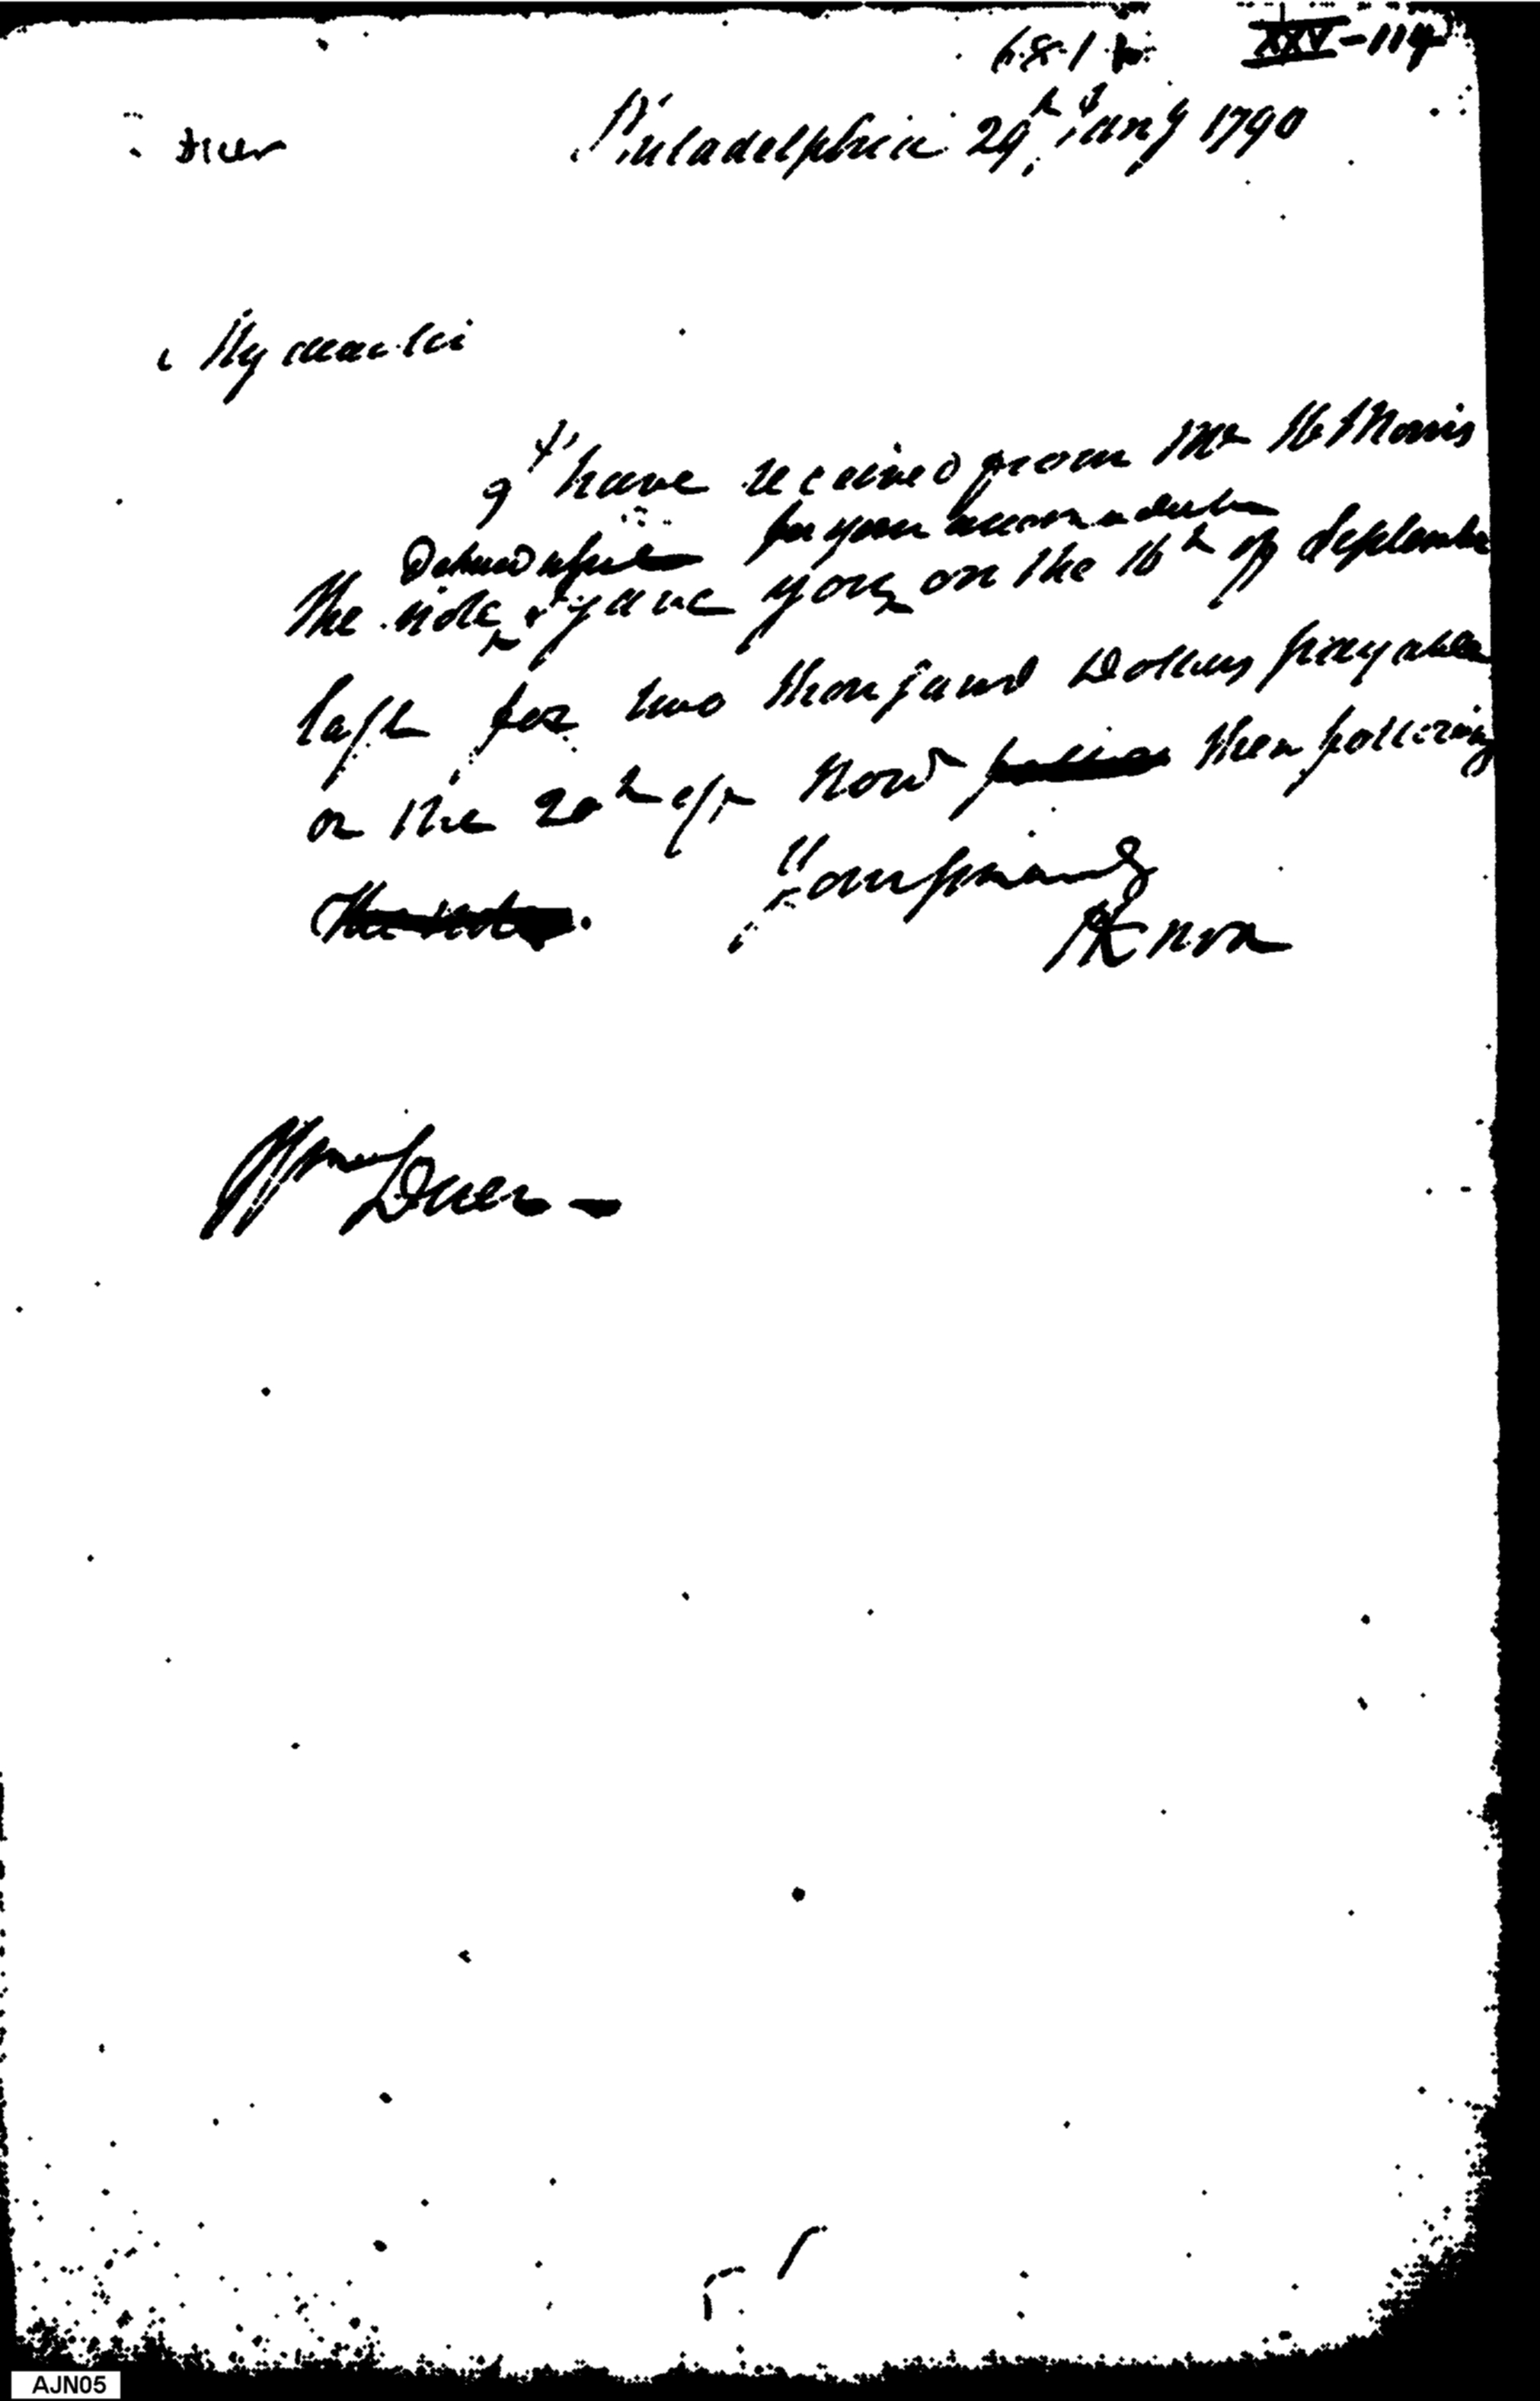 XXV-114
Duer Philadelphia 29th Jany 1790
My dear sir
I have received from Mr R Morris
for your accommodation
The note I gave you on the 16th of September
last for two thousand Dollars payable
on the 20th of Nov then following
The note.
Your friend
HKnox
Wm Duer -
AJN05